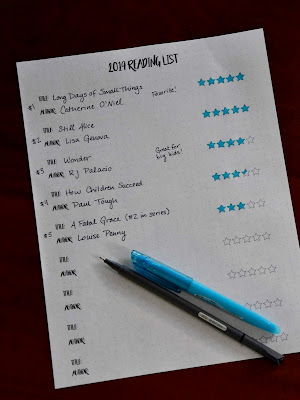 2019 READING LIST
#1 TITLE: Long Days of Small Things
AUTHOR: Catherine O'Niel
Favorite!
#2 TITLE: Still Alice
AUTHOR: Lisa Genova
#3 TITLE: Wonder
AUTHOR: RJ Palacio
Great for
big kids!
#4 TITLE: How Children Succeed
AUTHOR: Paul Tough
#5 TITLE: A Fatal Grace (#2 in series)
AUTHOR: Louise Penny
TITLE:
AUTHOR:
TITLE:
AUTHOR:
TITLE:
AUTHOR:
TITLE:
AUTHOR: